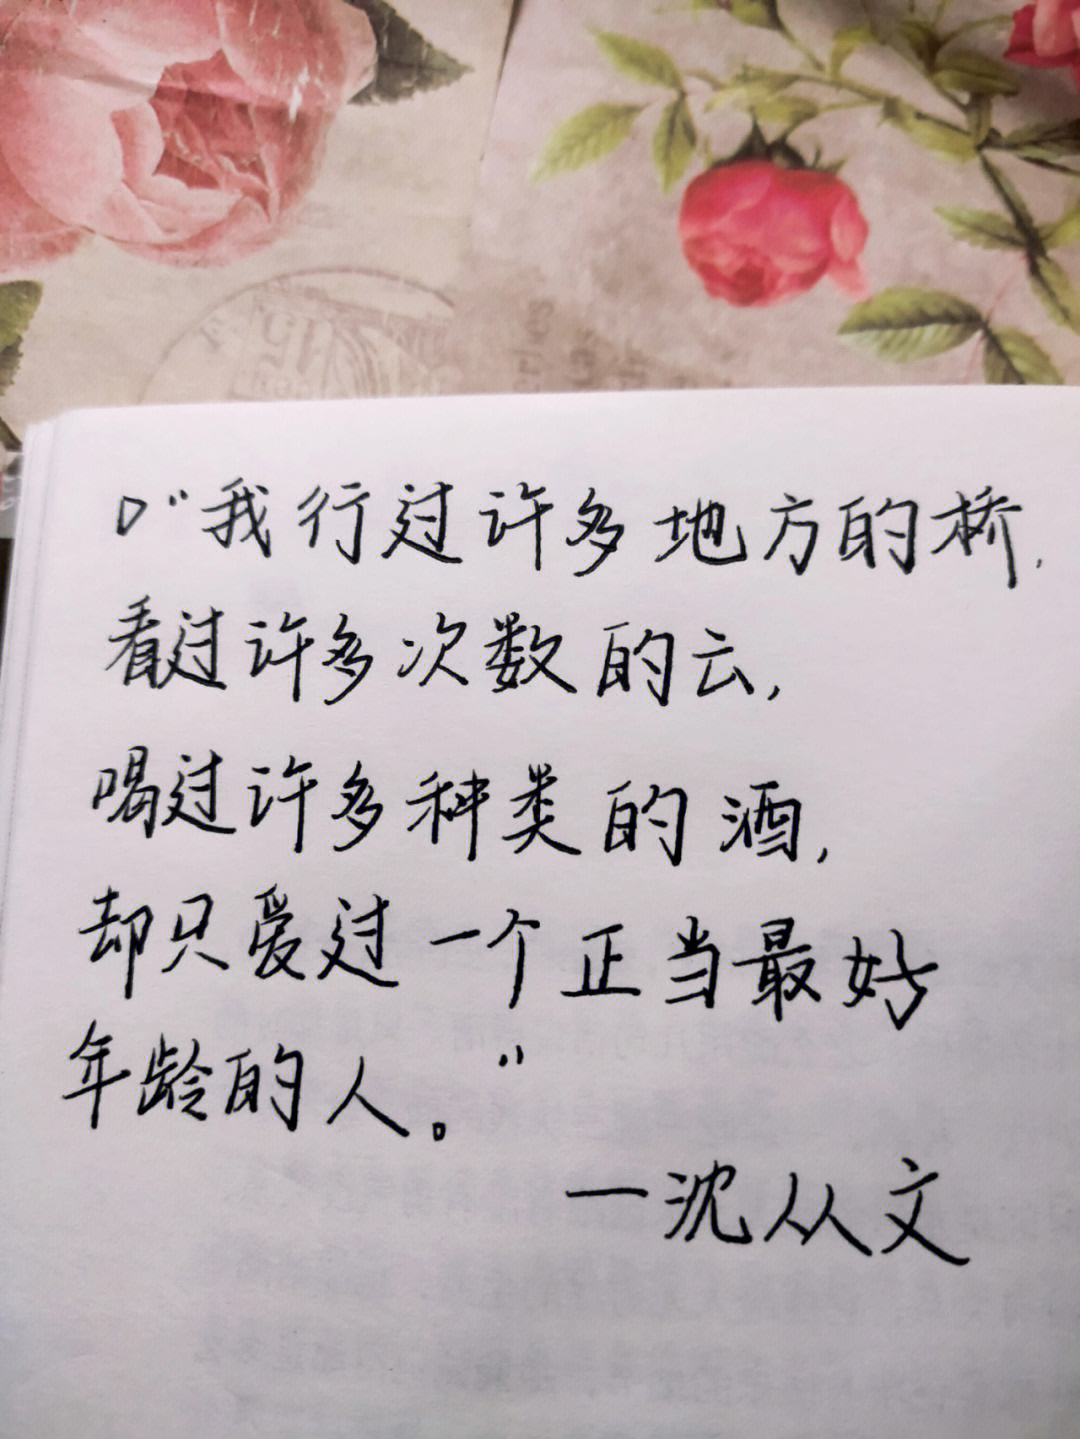 “我行过许多地方的桥,
看过许多次数的云,
喝过许多种类的酒,
却只爱过一个正当最好
年龄的人。”
—沈从文